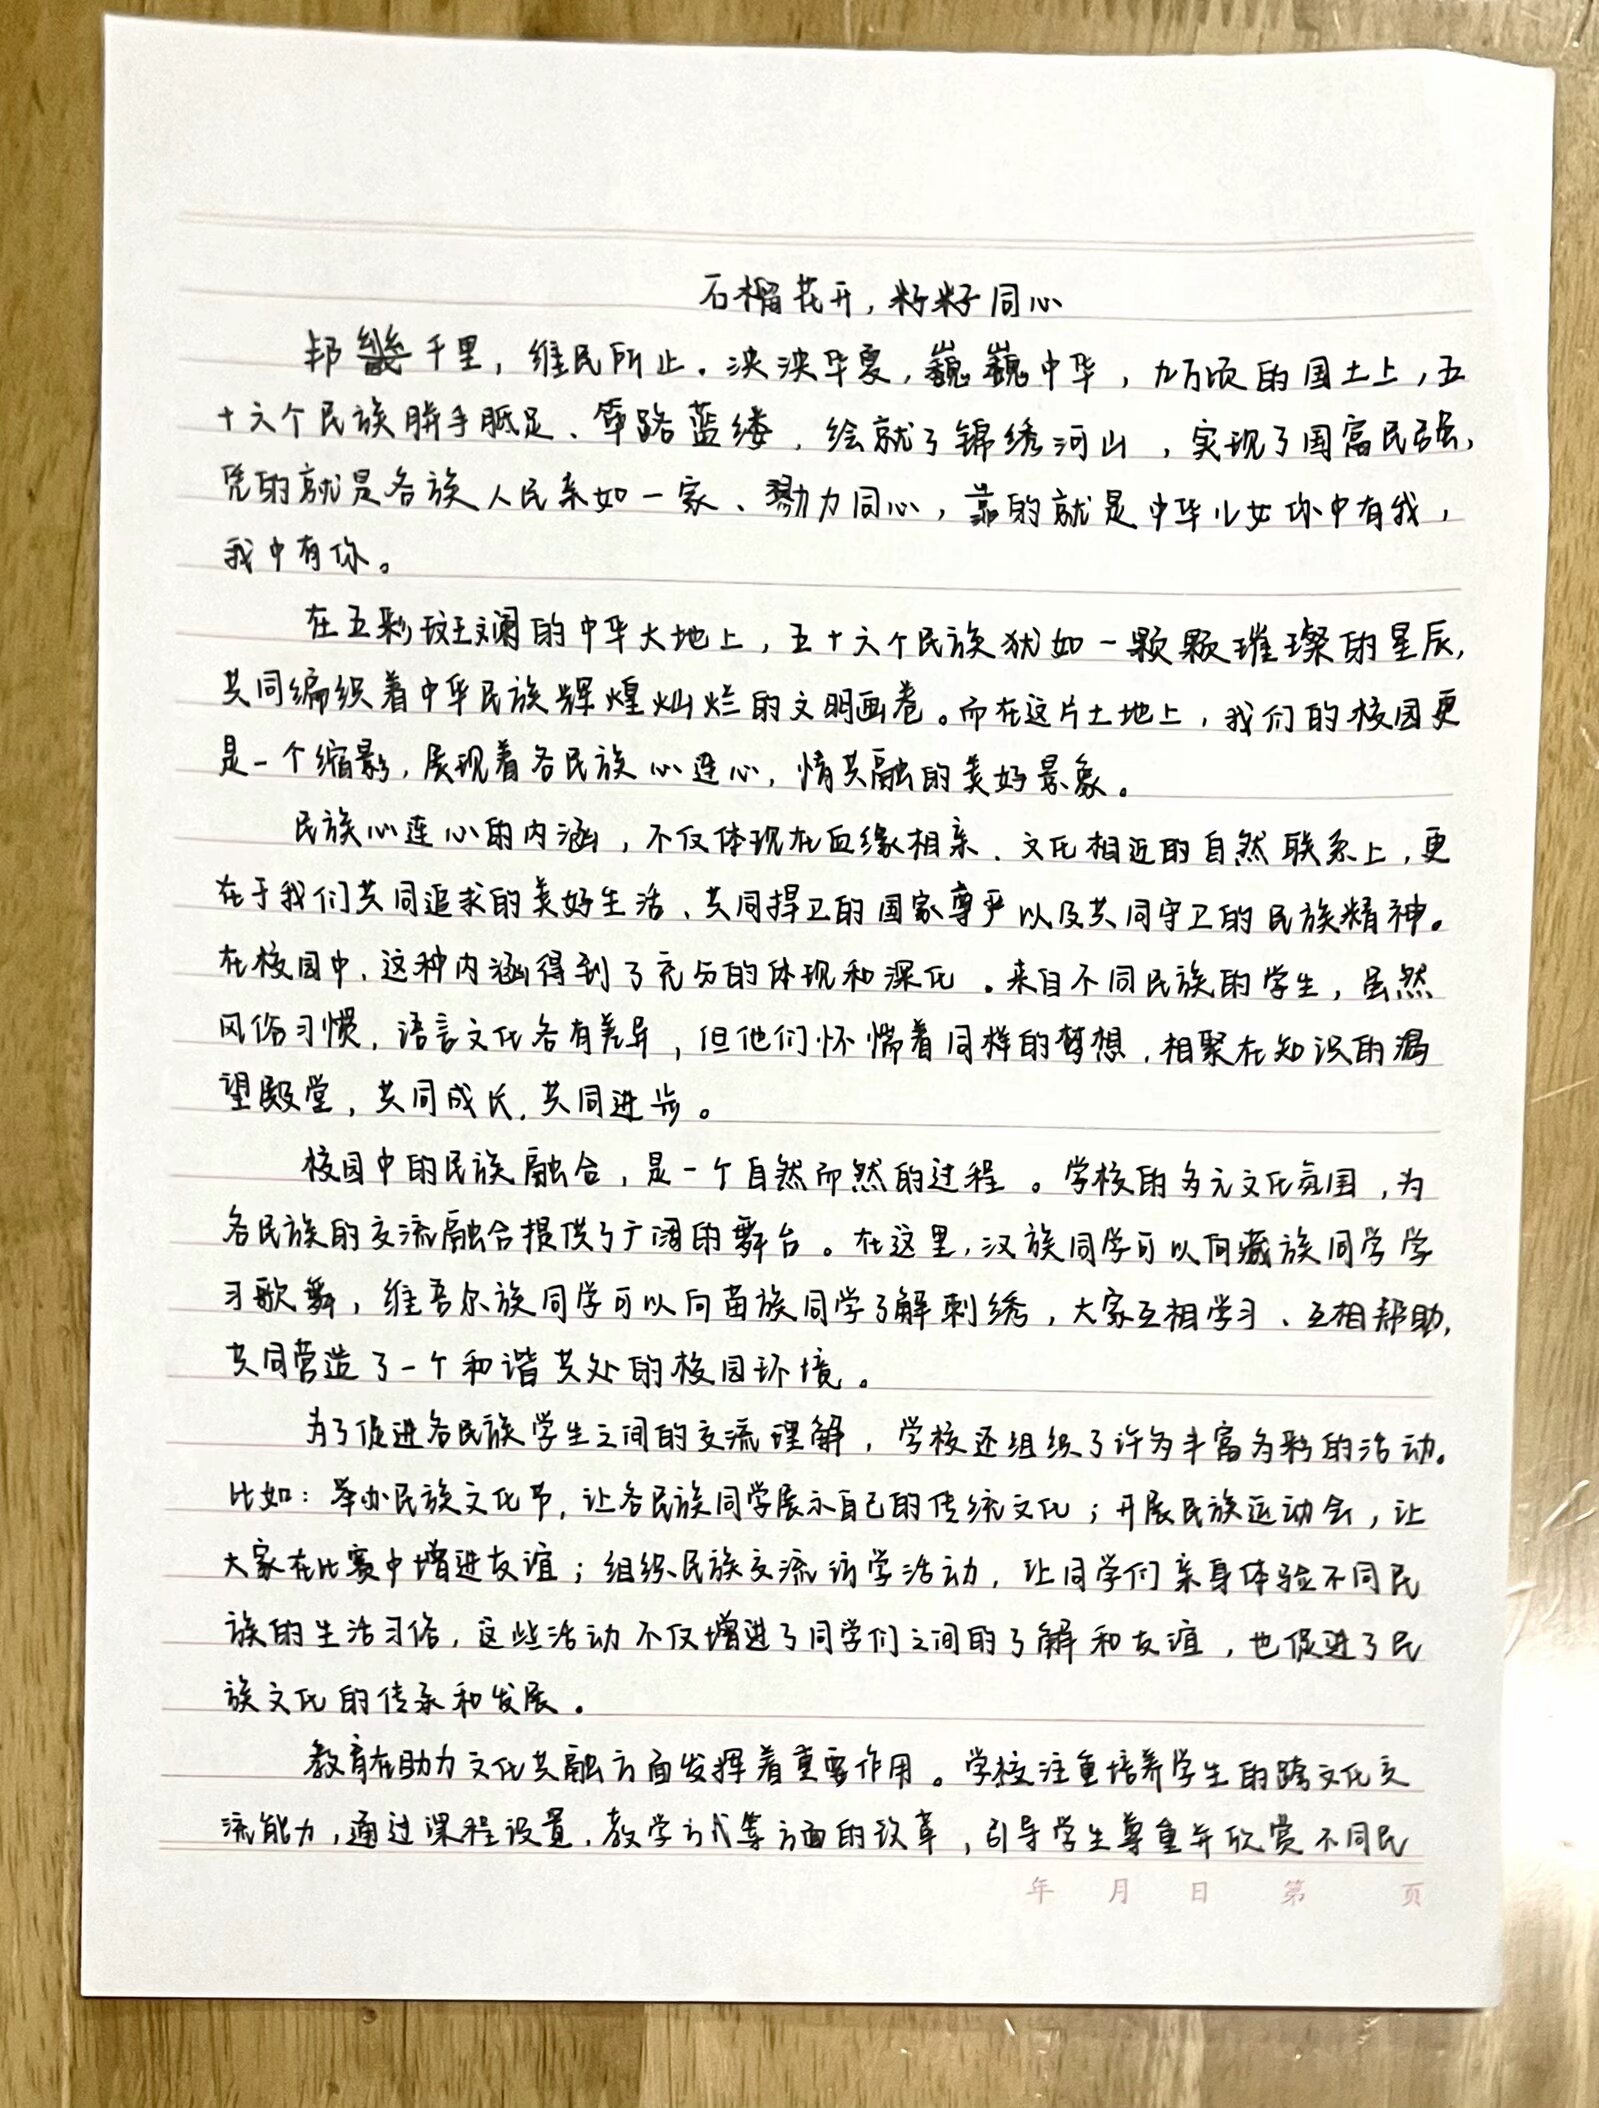 石榴花开，籽籽同心
邦畿千里，维民所止。泱泱华夏，巍巍中华，九万顷的国土上，五
十六个民族胼手胝足、筚路蓝缕，绘就了锦绣河山，实现了国富民强，
凭的就是各族人民亲如一家、勠力同心，靠的就是中华儿女你中有我，
我中有你。
在五彩斑斓的中华大地上，五十六个民族犹如一颗颗璀璨的星辰，
共同编织着中华民族辉煌灿烂的文明画卷。而在这片土地上，我们的校园更
是一个缩影，展现着各民族心连心，情共融的美好景象。
民族心连心的内涵，不仅体现在血缘相亲、文化相近的自然联系上，更
在于我们共同追求的美好生活、共同捍卫的国家尊严以及共同守卫的民族精神。
在校园中，这种内涵得到了充分的体现和深化。来自不同民族的学生，虽然
风俗习惯，语言文化各有差异，但他们怀惴着同样的梦想，相聚在知识的渴
望殿堂，共同成长，共同进步。
校园中的民族融合，是一个自然而然的过程。学校的多元文化氛围，为
各民族的交流融合提供了广阔的舞台。在这里，汉族同学可以向藏族同学学
习歌舞，维吾尔族同学可以向苗族同学了解刺绣，大家互相学习、互相帮助，
共同营造了一个和谐共处的校园环境。
为了促进各民族学生之间的交流理解，学校还组织了许多丰富多彩的活动。
比如：举办民族文化节，让各民族同学展示自己的传统文化；开展民族运动会，让
大家在比赛中增进友谊；组织民族交流访学活动，让同学们亲身体验不同民
族的生活习俗，这些活动不仅增进了同学们之间的了解和友谊，也促进了民
族文化的传承和发展。
教育在助力文化共融方面发挥着重要作用。学校注重培养学生的跨文化交
流能力，通过课程设置，教学方式等方面的改革，引导学生尊重并欣赏不同民
年 月 日 第 页